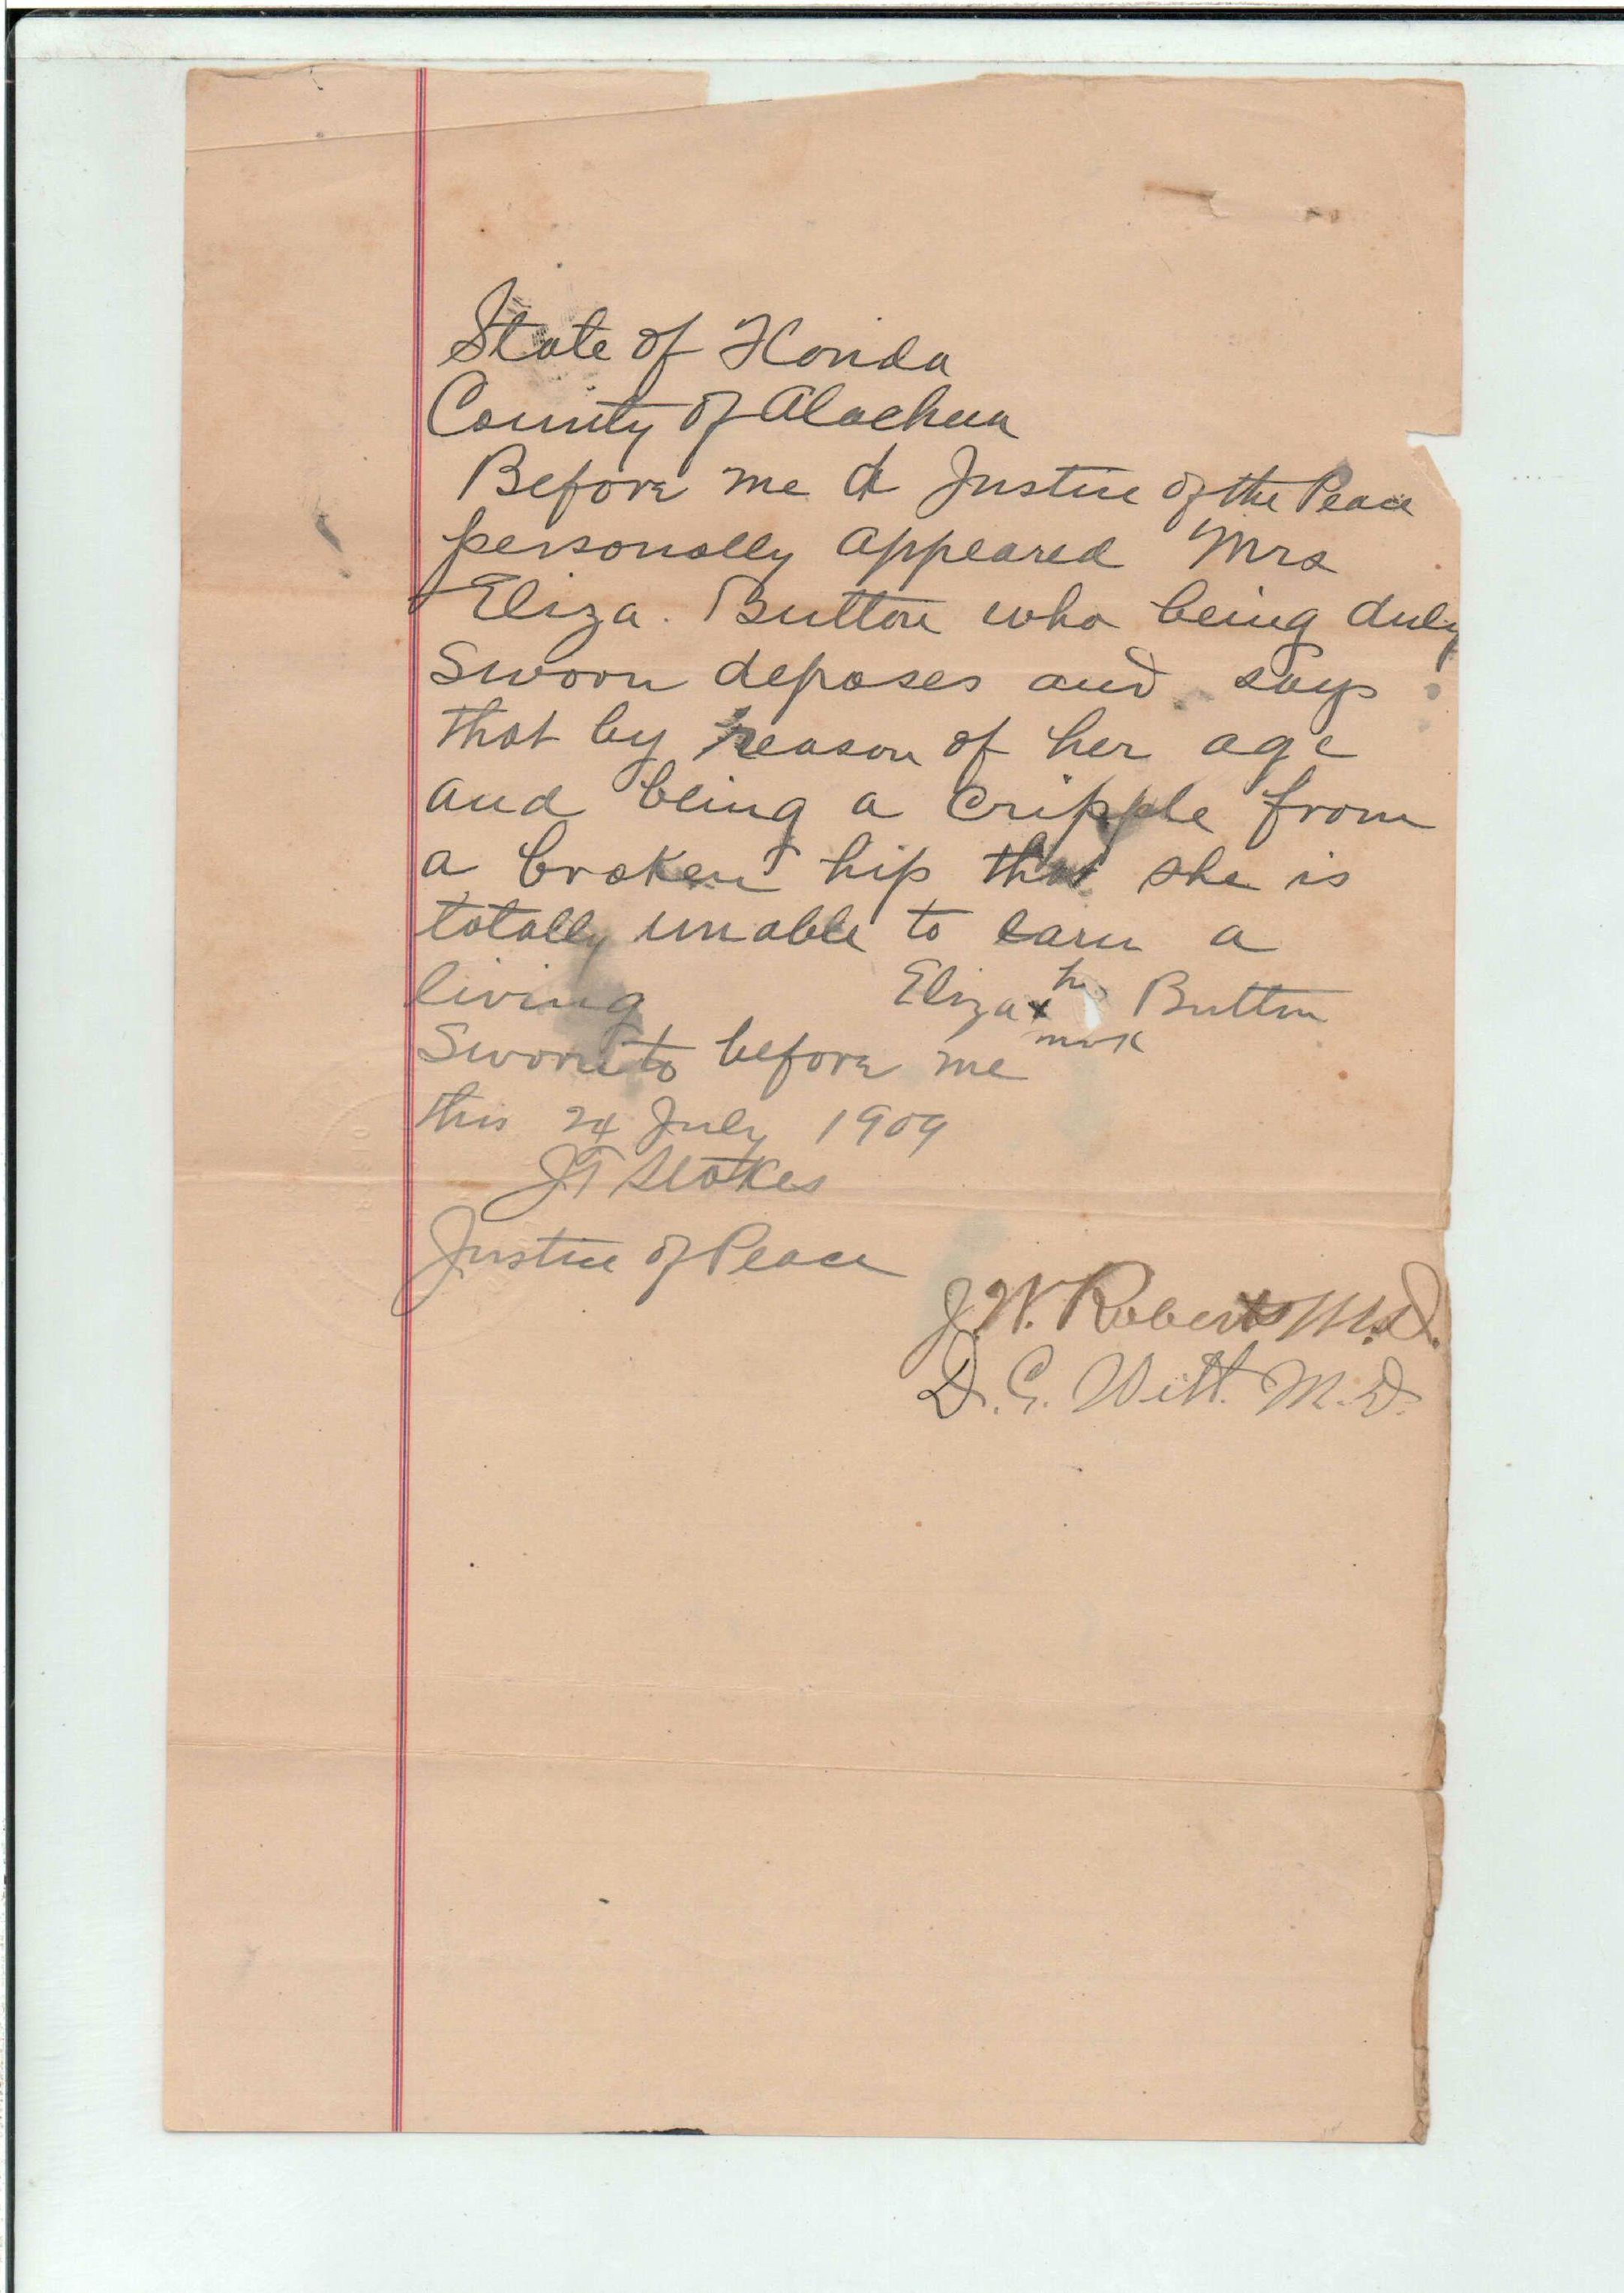 State of Florida
County of Alachua
Before me a Justice of the Peace
personally appeared Mrs
Eliza. Button who being duly
Sworn deposes and says
that by reason of her age
and being a cripple from
a broken hip that she is
totally unable to earn a
living
her
Eliza x Button
mark
Sworn to before me
this 24 July 1909
JT Stokes
Justice of Peace
J. W. Roberts M.D.
D. G. Witt. M.D.